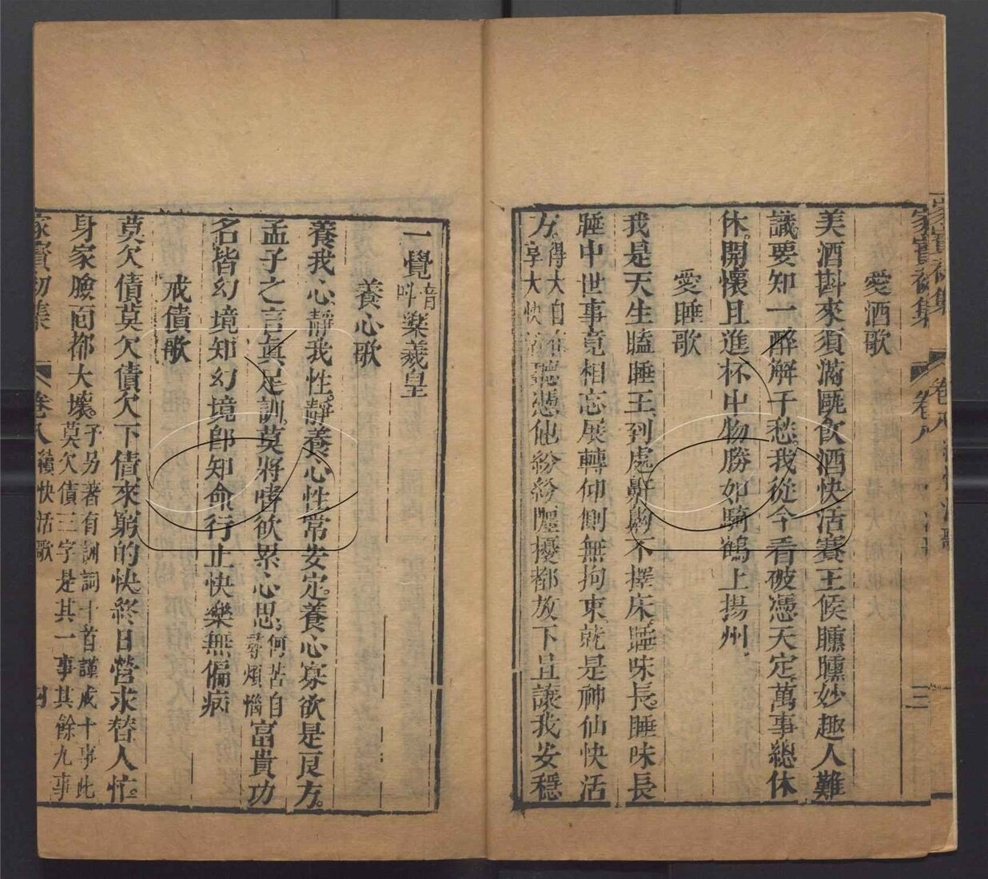 家寳初集
卷八
三
愛酒歌
美酒斟來須滿甌飲酒快活賽王侯醺醺妙趣人難
識要知一醉解千愁我從今看破憑天定萬事總休
休開懷且進杯中物勝如騎鶴上揚州
愛睡歌
我是天生瞌睡王到處鼾齁不擇床睡味長睡味長
睡中世事竟相忘展轉仰側無拘束就是神仙快活
方得大自享大快聽憑他紛紛攪擾都放下且讓我安穩
一覺叫樂羲皇
養心歌
養我心靜我性靜養心性常安定養心寡欲是良方
孟子之言眞足訓莫將情欲累心思何苦自尋煩惱富貴功
名皆幻境知幻境卽知命行止快樂無偏病
戒債歌
莫欠債莫欠債欠下債來窮的快終日營求替人忙
身家臉面都大壞予另著有訓詞十首謹戒十事此莫欠債三字是其一事其餘九事
家寳初集
卷八
快活歌
四